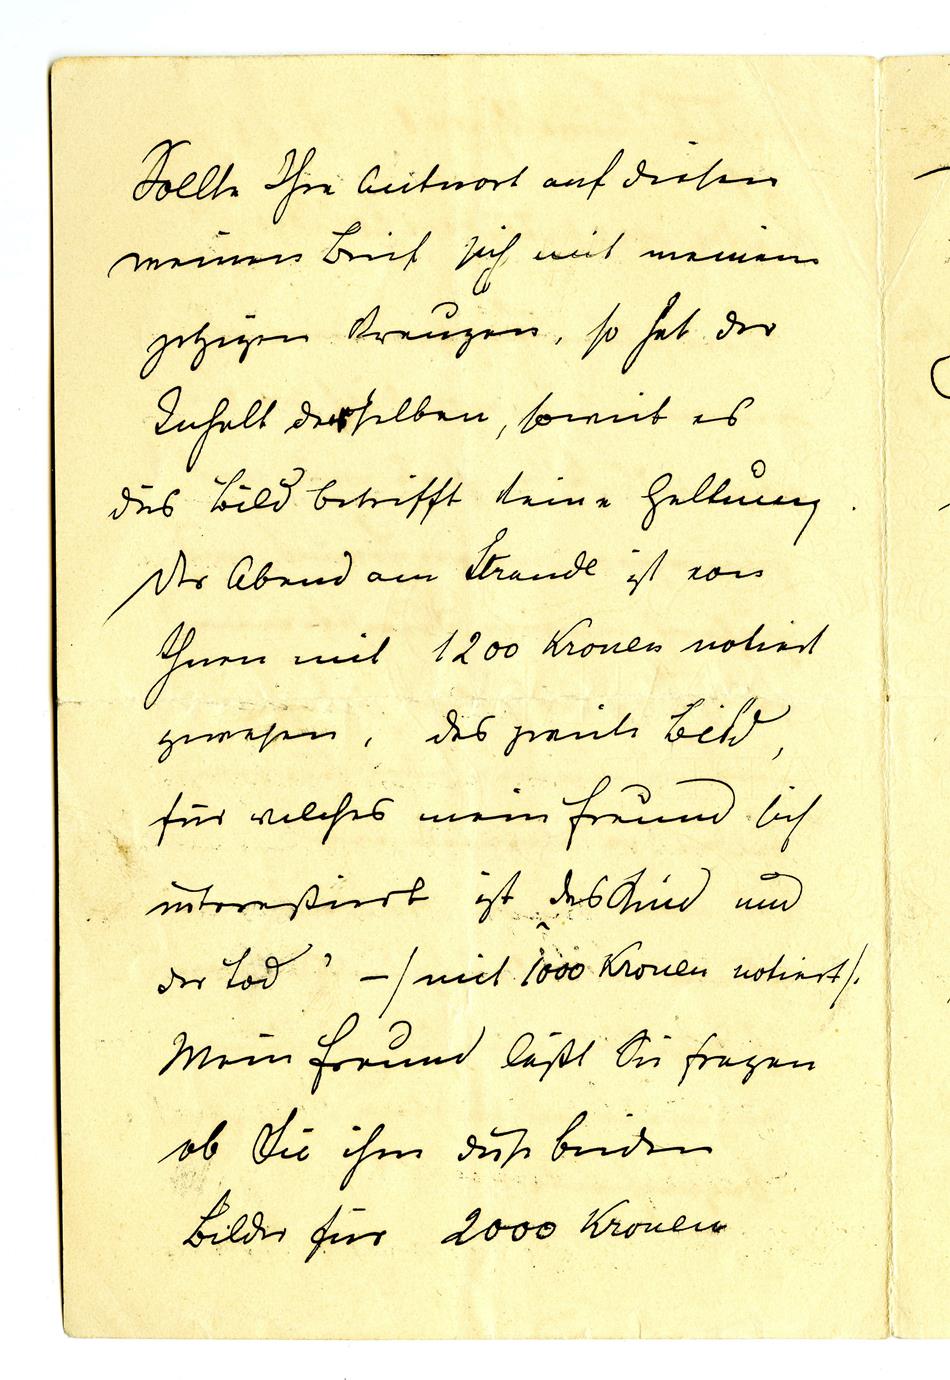 Sollte Ihre Antwort auf diesen
meinen Brief sich mit meinem
jetzigen kreuzen, so hat der
Inhalt desselben, soweit es
das Bild betrifft keine Geltung.
Der Abend am Strande ist von
Ihnen mit 1200 Kronen notiert
gewesen, das zweite Bild,
für welches mein Freund sich
interessiert ist das Kind und
der Tod" –/mit 1000 Kronen notiert/.
Mein Freund läßt Sie fragen
ob Sie ihm diese beiden
Bilder für 2000 Kronen